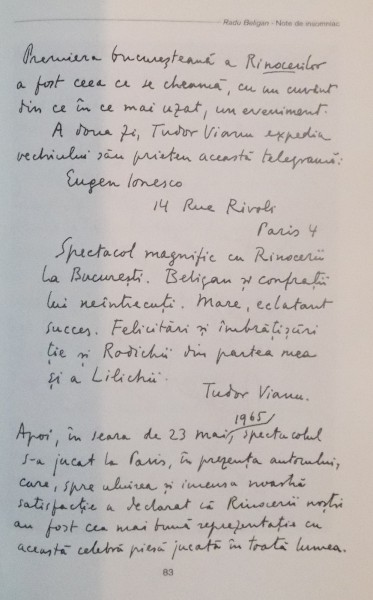 Radu Beligan - Note de insomniac
Premiera bucureșteană a Rinocerilor
a fost ceea ce se cheamă, cu un cuvânt
din ce în ce mai uzat, un eveniment.
A doua zi, Tudor Vianu expedia
vechiului său prieten această telegramă:
Eugen Ionesco
14 Rue Rivoli
Paris 4
Spectacol magnific cu Rinocerii
la București. Beligan și confrații
lui neîntrecuți. Mare, eclatant
succes. Felicitări și îmbrățișări
ție și Rodichii din partea mea
și a Lilichii.
Tudor Vianu.
1965
Apoi, în seara de 23 mai, spectacolul
s-a jucat la Paris, în prezența autorului,
care, spre uluirea și imensa noastră
satisfacție a declarat că Rinocerii noștri
au fost cea mai bună reprezentație cu
această celebră piesă jucată în toată lumea.
83